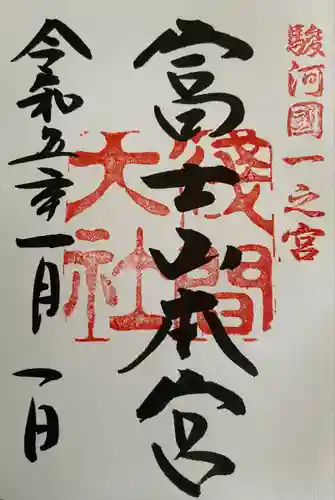 駿河國一之宮
富士山本宮
淺間
大社
令和五年一月一日